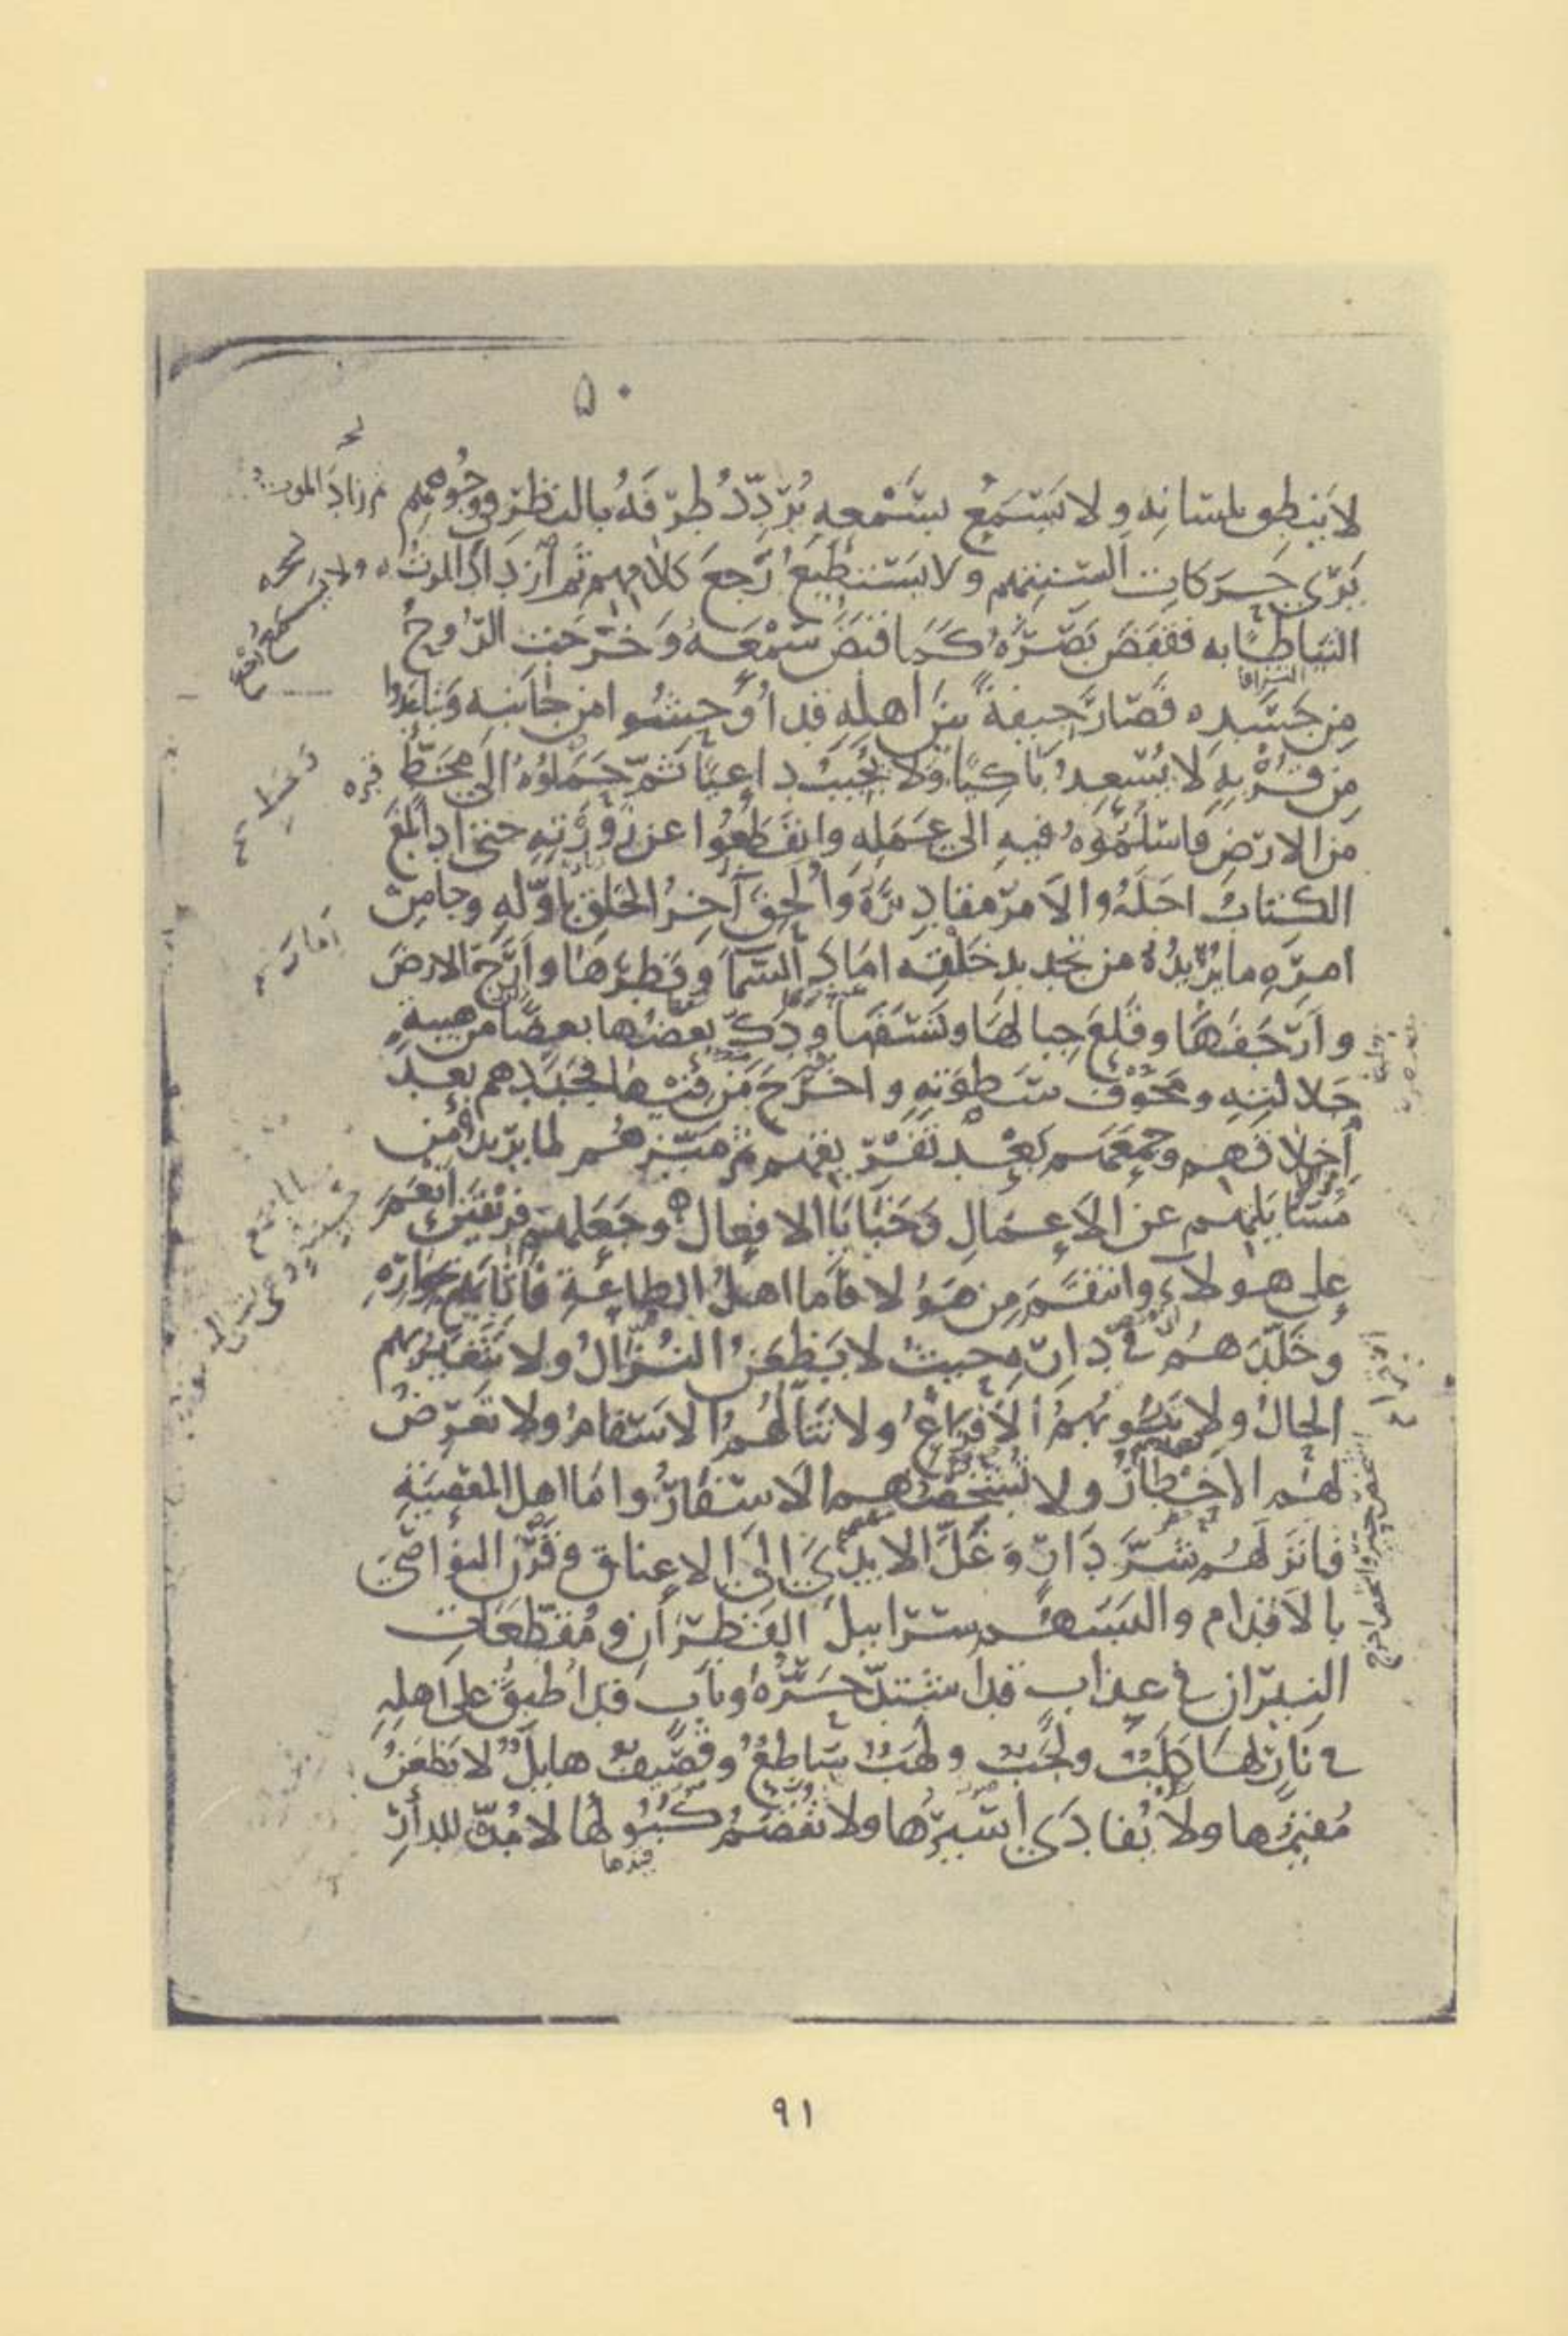 ٥٠
لا ينطق بلسانه ولا يسمع بسمعه يردد طرفه بالنظر في وجوههم
يرى حركات السنتهم ولا يستطيع رجع كلامهم ثم ازداد الموت
التياطا به فقبض بصره كما قبض سمعه وخرجت الروح
من جسده فصار جيفة بين اهله قد اوحشوا من جانبه وتباعدوا
من قربه لا يسعد باكيا ولا يجيب داعيا ثم حملوه الى محط
من الارض فاسلموه فيه الى عمله وانقطعوا عن زورته حتى اذا بلغ
الكتاب اجله والامر مقاديره وألحق آخر الخلق باوله وجا من
امره ما يريده من تجديد خلقه اماد السما وفطرها وارج الارض
وارجفها وقلع جبالها ونسفها ودك بعضها بعضا من هيبة
جلالته ومخوف سطوته واخرج من فيها فجددهم بعد
إخلاقهم وجمعهم بعد تفريقهم ثم ميزهم لما يريد من
مسايلتهم عن الاعمال وخبايا الافعال وجعلهم فريقين انعم
على هولاء وانتقم من هولا فاما اهل الطاعة فاثابهم بجواره
وخلدهم في داره حيث لا يظعن النزال ولا يتغير بهم
الحال ولا تنوبهم الافزاع ولا تنالهم الاسقام ولا تعرض
لهم الاخطار ولا تشخصهم الاسفار واما اهل المعصية
فانزلهم شر دار وغل الايدي الى الاعناق وقرن النواصي
بالاقدام والبسهم سرابيل القطران ومقطعات
النيران في عذاب قد اشتد حره وباب قد اطبق على اهله
في نار لها كلب ولجب ولهب ساطع وقصيف هايل لا يظعن
مقيمها ولا يفادى اسيرها ولا تفصم كبولها لا مدة للدار
قيدها
٩١